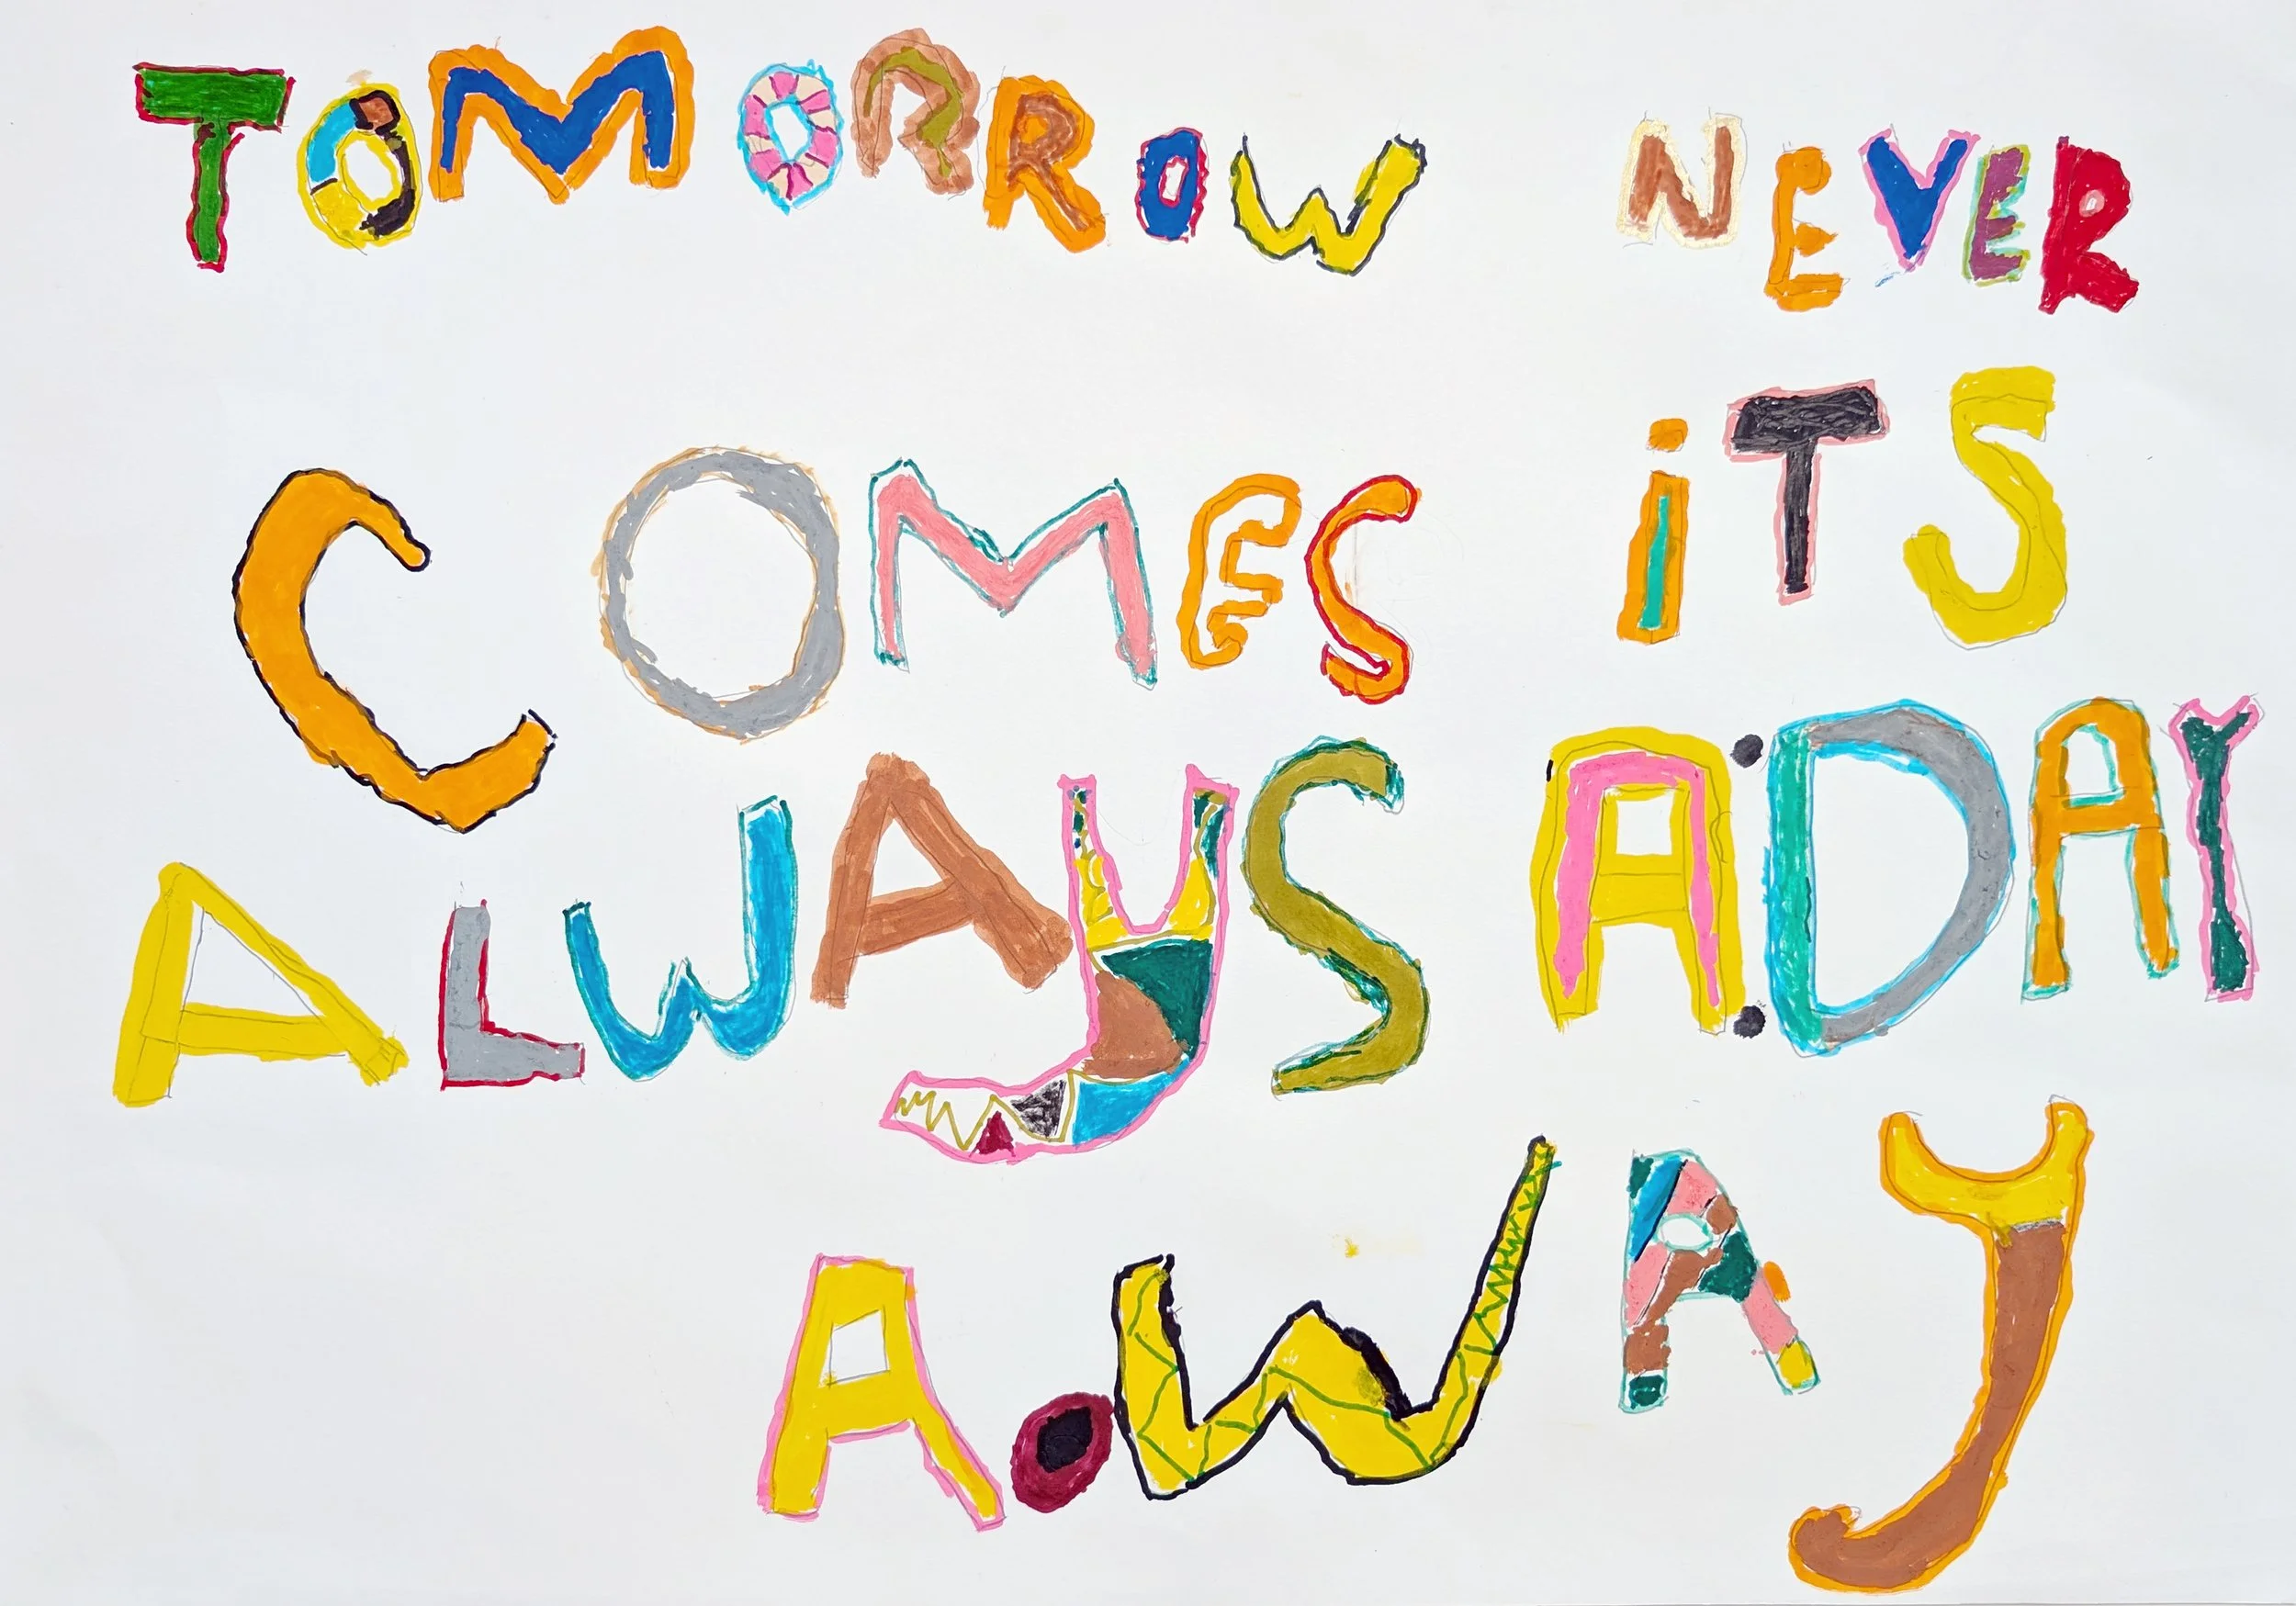 TOMORROW NEVER
COMES iTS
ALWAYS A:DAY
A.WAY